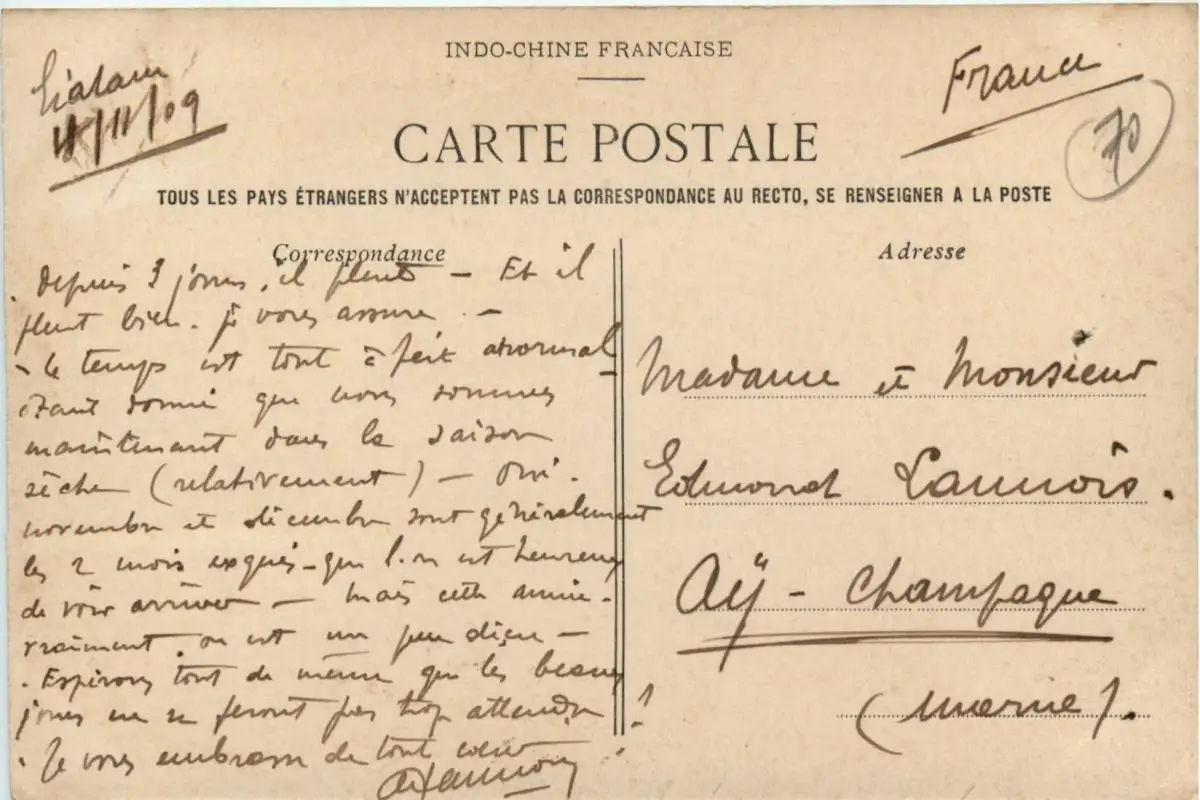 INDO-CHINE FRANCAISE
Gialam
France
/11/09
70
CARTE POSTALE
TOUS LES PAYS ÉTRANGERS N'ACCEPTENT PAS LA CORRESPONDANCE AU RECTO, SE RENSEIGNER A LA POSTE
Correspondance
Depuis 3 jours, il pleut — Et il
pleut bien. je vous assure. —
- le temps est tout à fait anormal
étant donné que nous sommes
maintenant dans la saison
sèche (relativement) — Oui.
novembre et décembre sont généralement
les 2 mois exquis - que l'on est heureux
de voir arriver — mais cette année.
vraiment, on est un peu déçu —
. Espérons tout de même que les beaux
jours ne se feront pas trop attendre !
. Je vous embrasse de tout coeur
Lannois
Adresse
Madame et Monsieur
Edmond Lannois.
Aÿ - Champagne
(Marne).